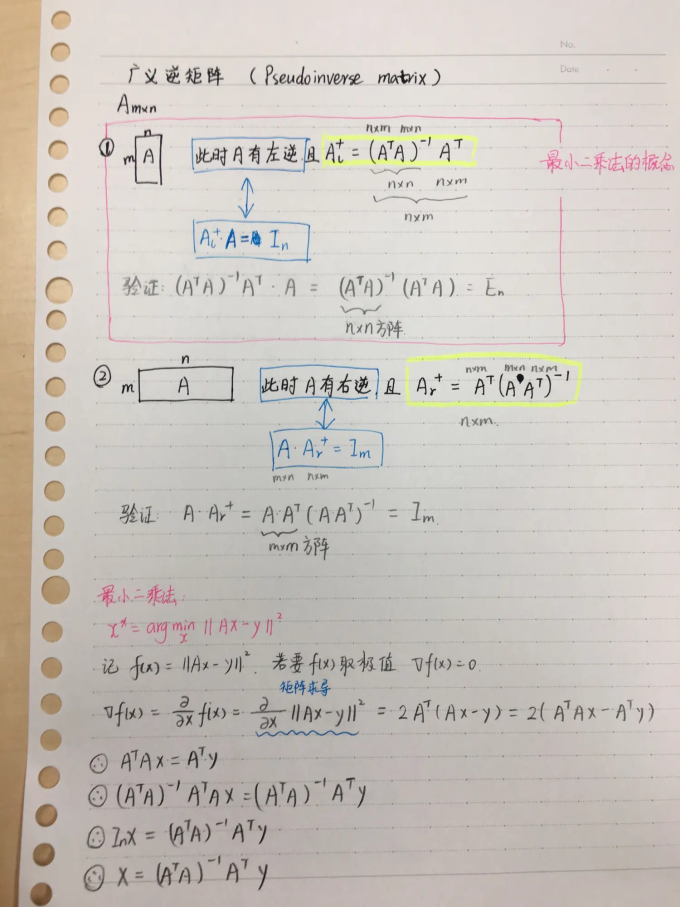 No.
Date
广义逆矩阵 (Pseudoinverse matrix)
Am×n
① n m A 此时A有左逆 且 Al⁺ = (AᵀA)⁻¹ Aᵀ
n×m m×n
n×n n×m
n×m
最小二乘法的概念
Al⁺·A = In
验证: (AᵀA)⁻¹Aᵀ · A = (AᵀA)⁻¹(AᵀA) = En
n×n方阵
② n m A 此时A有右逆, 且 Ar⁺ = Aᵀ(A·Aᵀ)⁻¹
n×m m×n n×m
n×m.
A·Ar⁺ = Im
m×n n×m
验证: A·Ar⁺ = A·Aᵀ(AAᵀ)⁻¹ = Im
m×m方阵
最小二乘法:
x* = argmin x ||Ax-y||²
记 f(x) = ||Ax-y||². 若要f(x)取极值 ∇f(x)=0.
矩阵求导
∇f(x) = ∂/∂x f(x) = ∂/∂x ||Ax-y||² = 2Aᵀ(Ax-y) = 2(AᵀAx-Aᵀy)
∴ AᵀAx = Aᵀy
∴ (AᵀA)⁻¹AᵀAx = (AᵀA)⁻¹Aᵀy
∴ Inx = (AᵀA)⁻¹Aᵀy
∴ x = (AᵀA)⁻¹Aᵀy